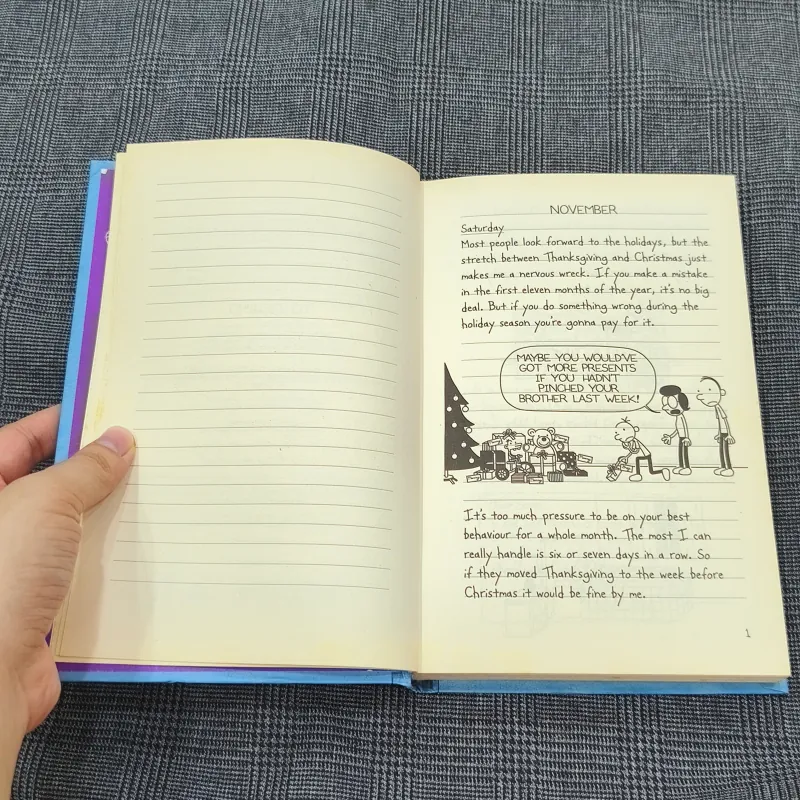 NOVEMBER
Saturday
Most people look forward to the holidays, but the
stretch between Thanksgiving and Christmas just
makes me a nervous wreck. If you make a mistake
in the first eleven months of the year, it's no big
deal. But if you do something wrong during the
holiday season you're gonna pay for it.
MAYBE YOU WOULD'VE
GOT MORE PRESENTS
IF YOU HADN'T
PINCHED YOUR
BROTHER LAST WEEK!
It's too much pressure to be on your best
behaviour for a whole month. The most I can
really handle is six or seven days in a row. So
if they moved Thanksgiving to the week before
Christmas it would be fine by me.
1